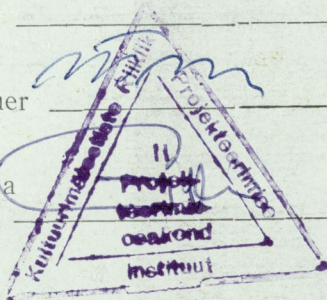 ner
a
Kultuurimälestiste Riiklik
Projekteerimise
II
Projek-
teerimis-
osakond
Instituut